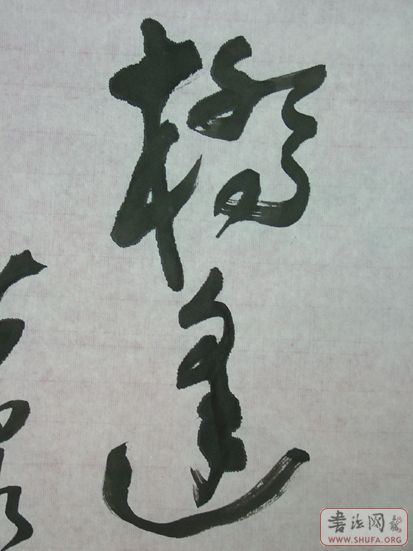 橋逢
書法网
WWW.SHUFA.ORG